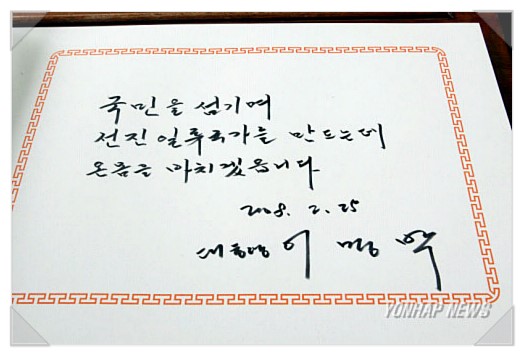 국민을 섬기며
선진일류국가를 만드는데
온몸을 바치겠읍니다
2008. 2. 25
대통령 이명박
YONHAP NEWS